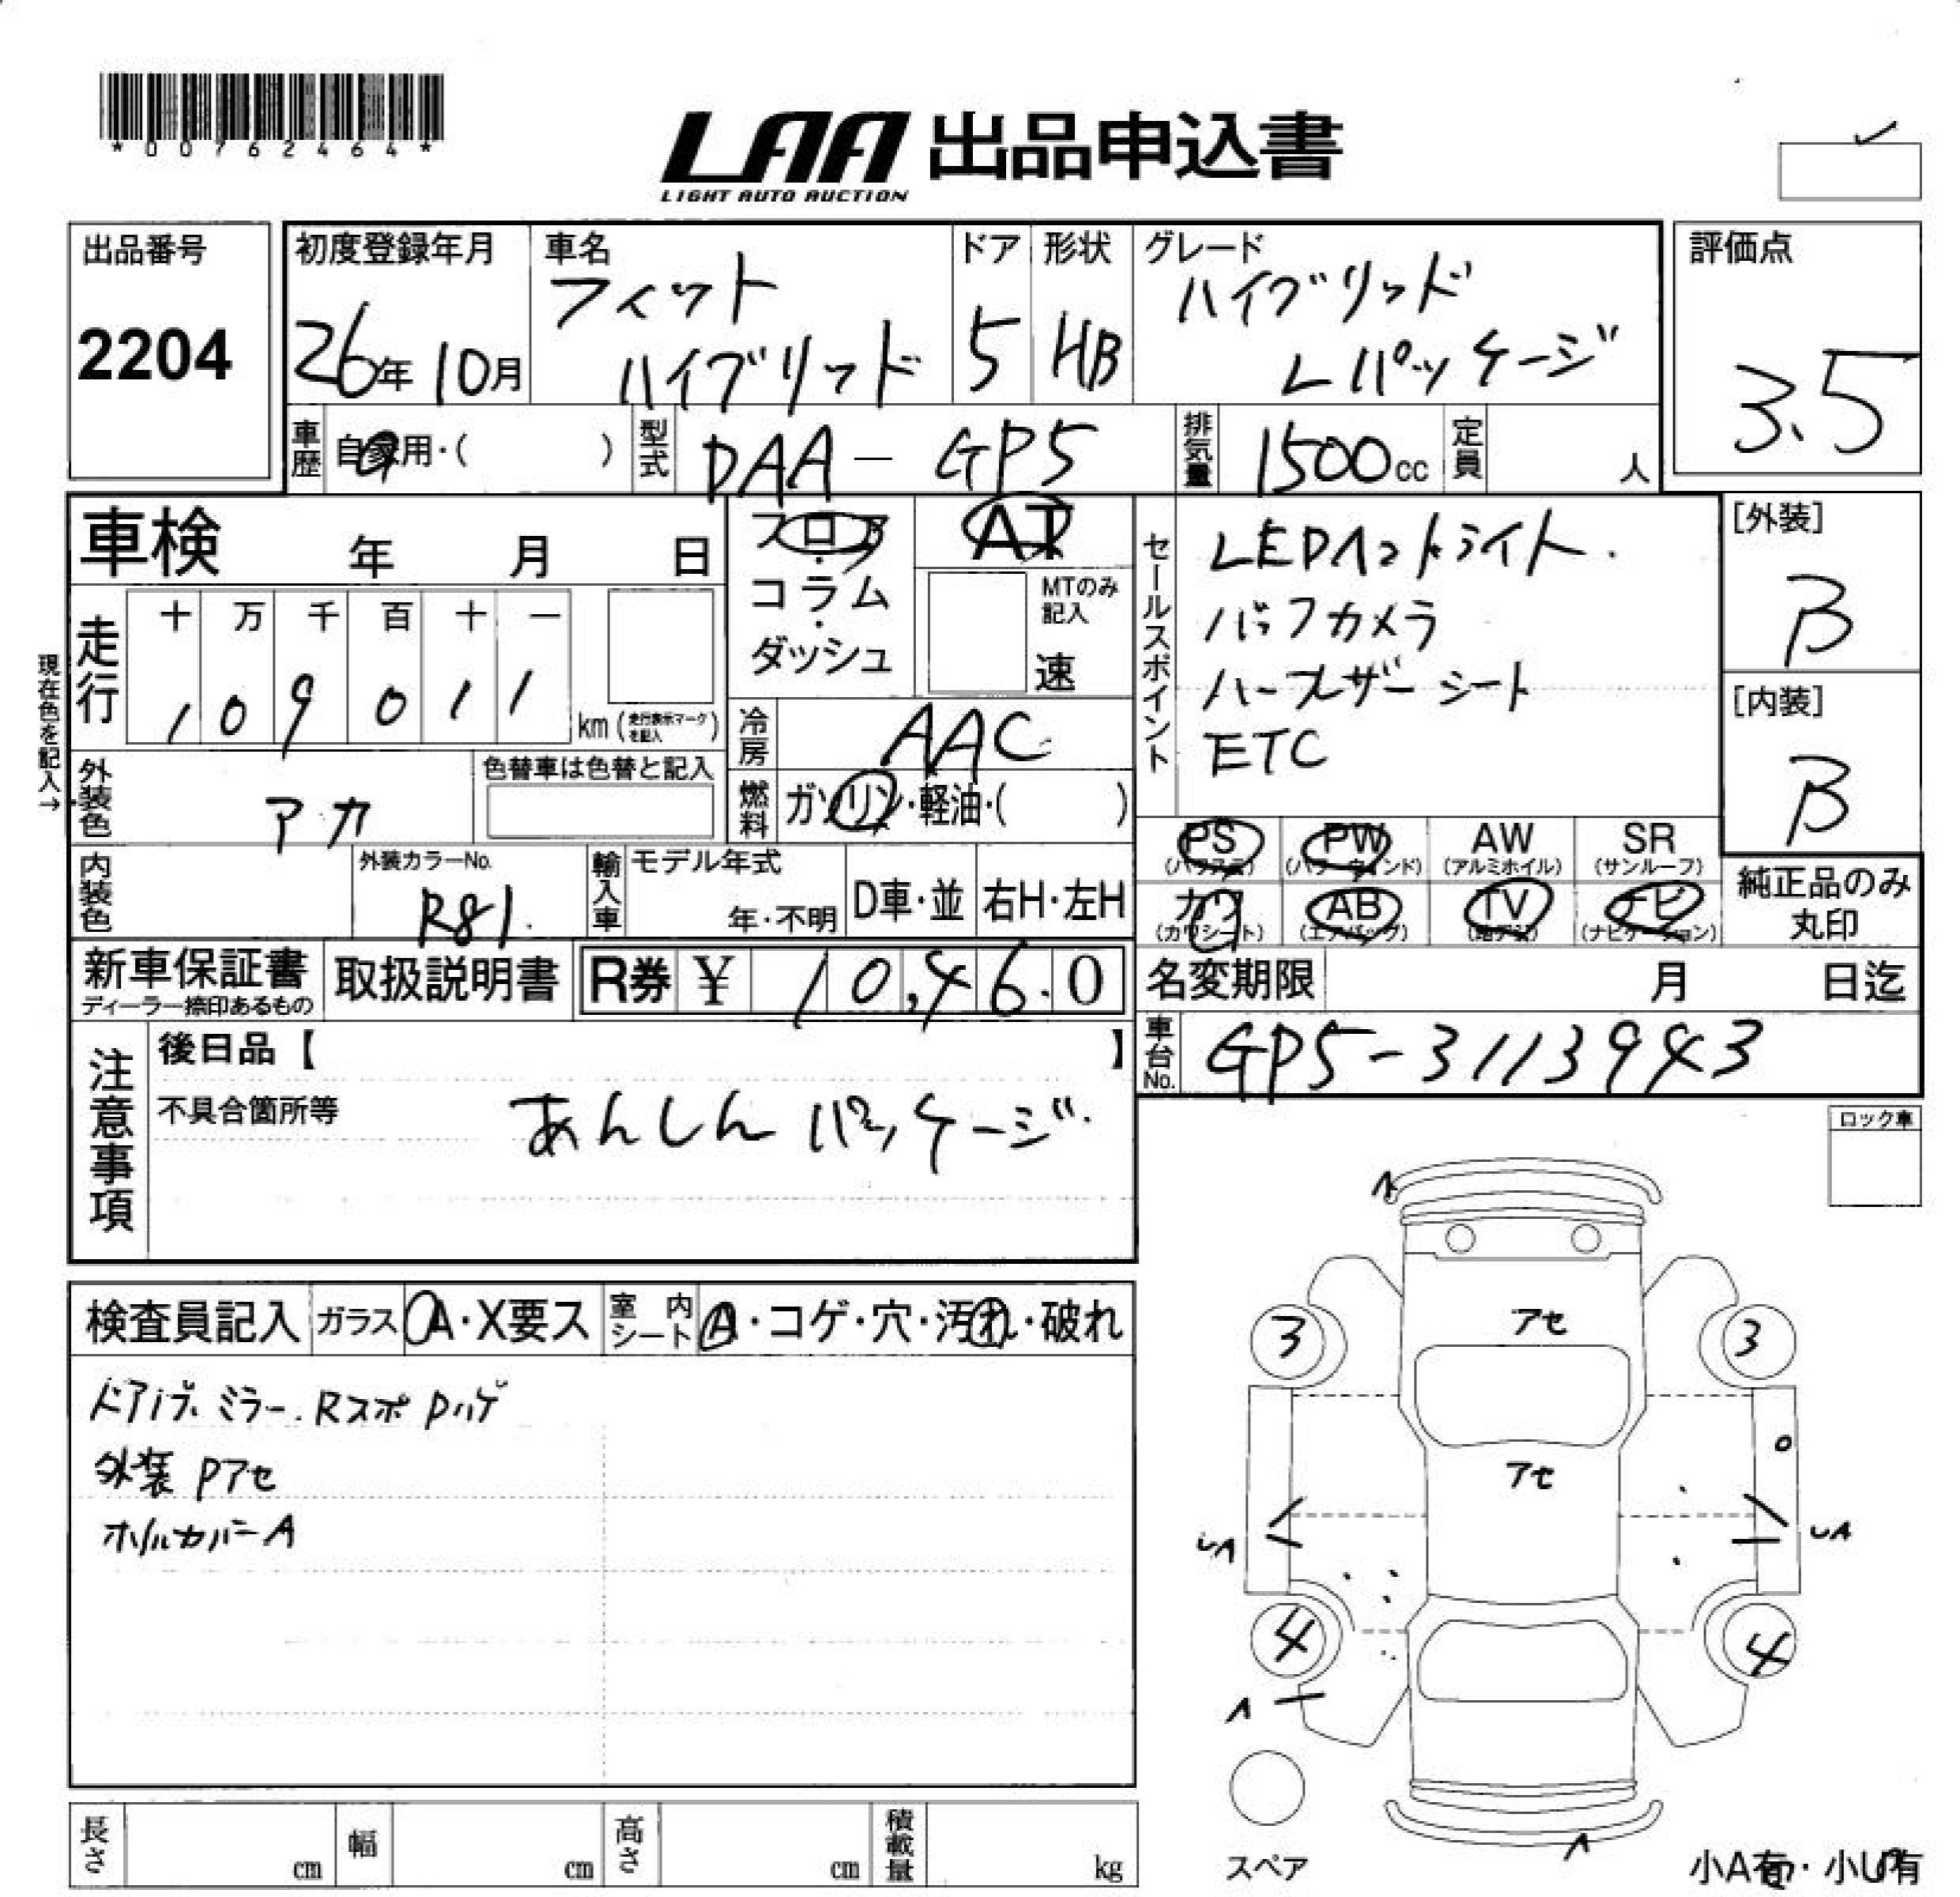 *00762464*
LAA 出品申込書
LIGHT AUTO AUCTION
出品番号
2204
初度登録年月
26年 10月
車名
フィット
ハイブリッド
ドア
5
形状
HB
グレード
ハイブリッド
Lパッケージ
評価点
3.5
車歴
自家用・( )
型式
DAA - GP5
排気量
1500cc
定員
人
車検 年 月 日
フロア
・
コラム
・
ダッシュ
AT
MTのみ
記入
速
セールスポイント
LEDヘッドライト.
バックカメラ
ハーフレザーシート
ETC
[外装]
B
[内装]
B
現在色を記入→
走行
十 万 千 百 十 一
1 0 9 0 1 1
km (走行表示マークを記入)
冷房
AAC
外装色
アカ
色替車は色替と記入
燃料
ガソリン・軽油・( )
PS
(パワステ)
PW
(パワーウィンド)
AW
(アルミホイル)
SR
(サンルーフ)
カワ
(カワシート)
AB
(エアバッグ)
TV
(地デジ)
ナビ
(ナビゲーション)
純正品のみ
丸印
内装色
外装カラーNo.
R81.
輸入車
モデル年式
年・不明
D車・並
右H・左H
新車保証書
ディーラー捺印あるもの
取扱説明書
R券 ¥ 10,460
名変期限 月 日迄
車台No.
GP5-3113943
注意事項
後日品【 】
不具合箇所等
あんしんパッケージ.
ロック車
検査員記入
ガラス
A・X要ス
室内シート
A・コゲ・穴・汚れ・破れ
ドアノブ.ミラー.Rスポ Pハゲ
外装 Pアセ
ホイルカバーA
A
アセ
3
3
アセ
UA
UA
4
4
A
A
スペア
小A有・小U有
長さ
cm
幅
cm
高さ
cm
積載量
kg